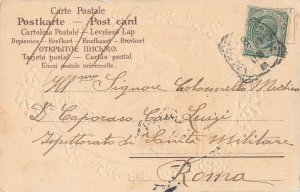 Carte Postale
Postkarte — Post card
Cartolina Postale — Levelezö Lap
Dopisnice — Brefkort — Briefkaart — Brevkort
ОТКРЫТОЕ ПИСЬМО.
Tarjeta postal — Cartão postal
Union postale universelle.
Signore Colonnello Medico
Dr Caporaso Cav Luigi
Ispettorato di Sanità Militare
Roma